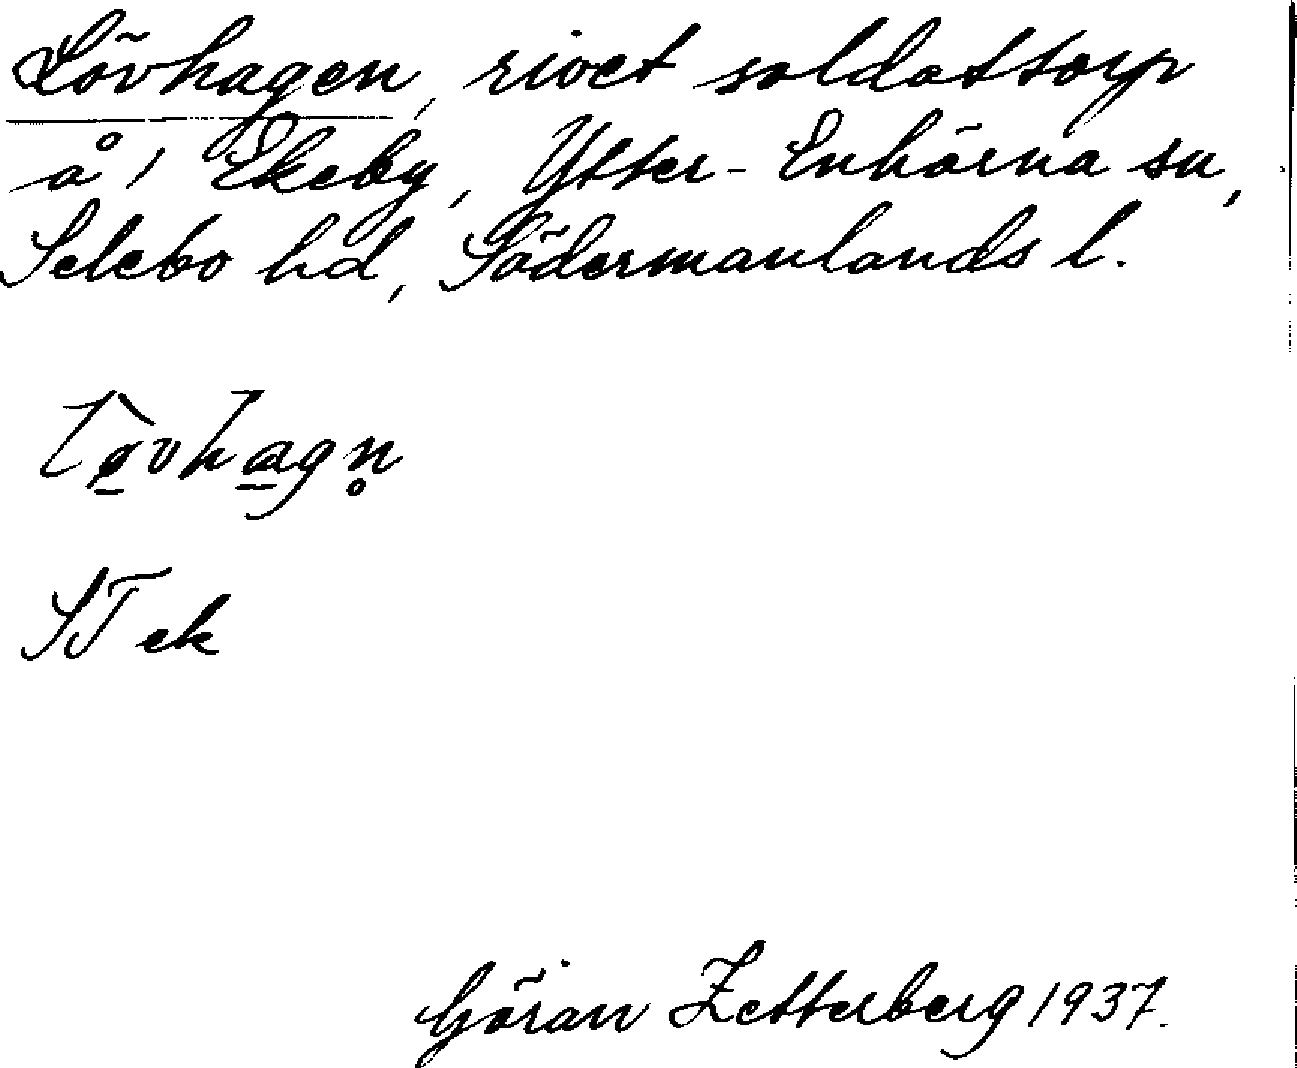 Lövhagen, rivet soldattorp
å 1 Ekeby, Ytter-Enhörna sn,
Selebo hd, Södermanlands l.
STek
Göran Zetterberg 1937.